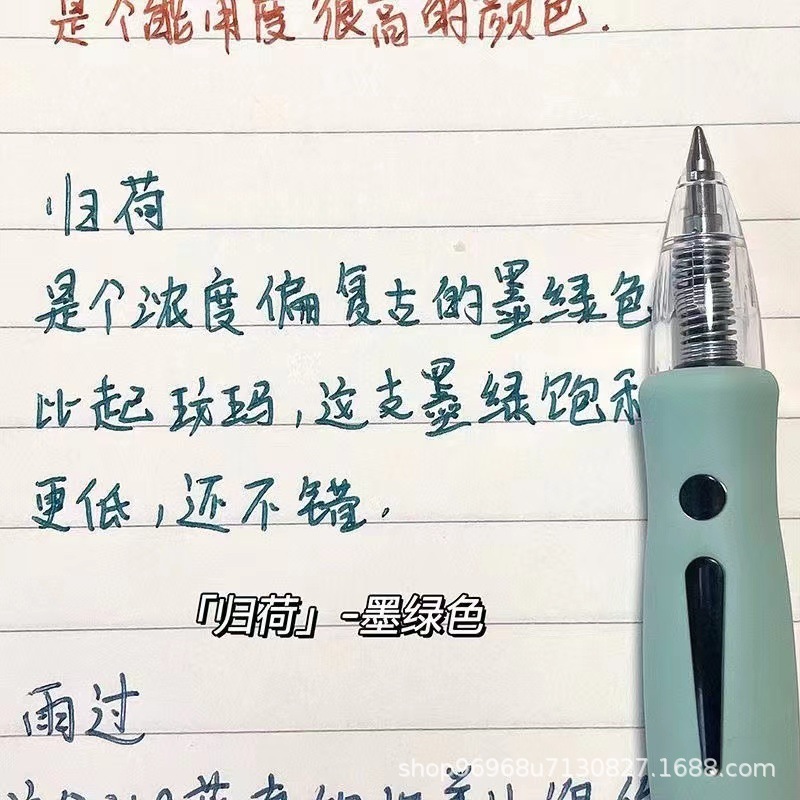 是个能用度很高的颜色.
归荷
是个浓度偏复古的墨绿色
比起玏玛,这支墨绿饱和
更低,还不错.
「归荷」-墨绿色
雨过
shop96968u7130827.1688.com